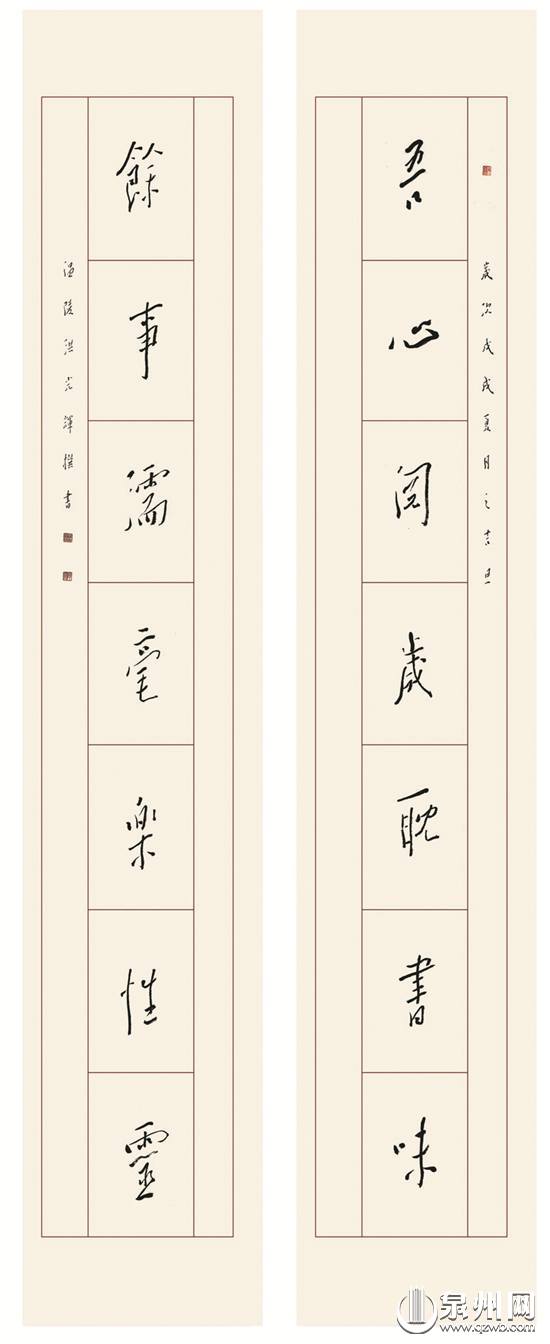 歲次戊戌夏月之吉旦
吾心閱歲耽書味
餘事濡毫樂性靈
温陵洪光輝撰書
泉州网
www.qzwb.com